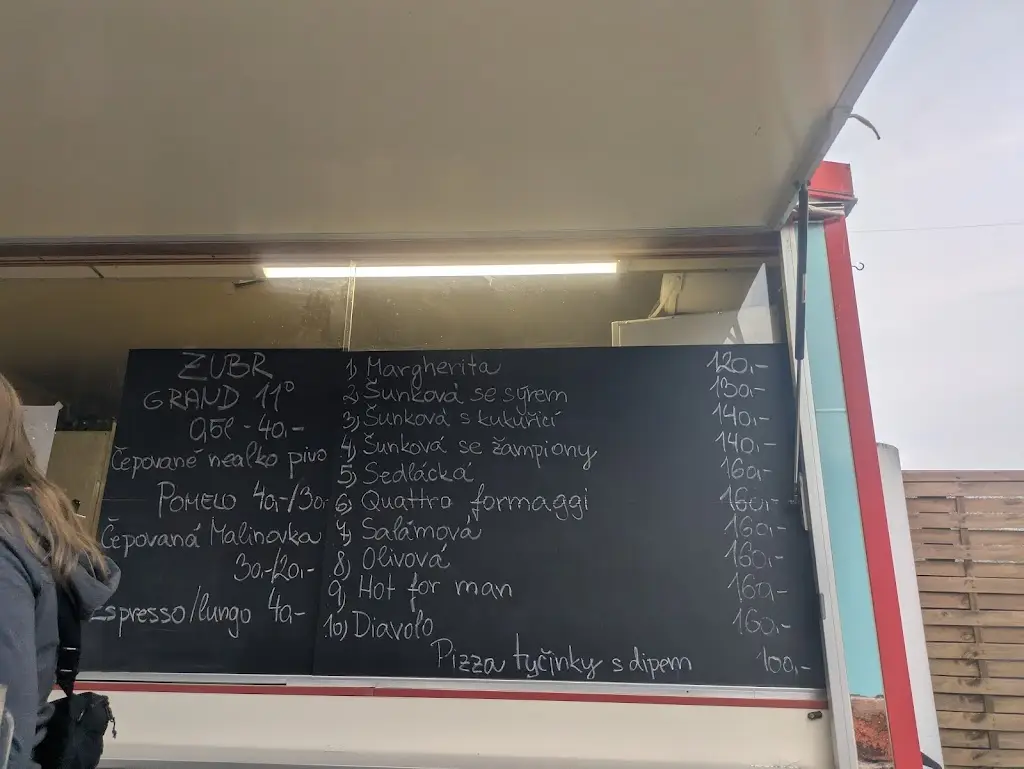 ZUBR
GRAND 11°
0,5l - 40,-
Čepované nealko pivo
POMELO 40,-/30,-
Čepovaná Malinovka
30,-/20,-
Espresso/lungo 40,-
1) Margherita 120,-
2) Šunková se sýrem 130,-
3) Šunková s kukuřicí 140,-
4) Šunková se žampiony 140,-
5) Sedlácká 160,-
6) Quattro formaggi 160,-
7) Salámová 160,-
8) Olivová 160,-
9) Hot for man 160,-
10) Diavolo 160,-
Pizza tyčinky s dipem 100,-